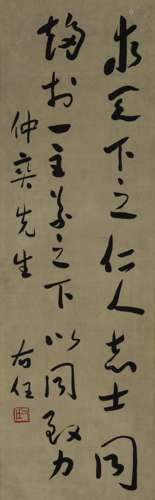 求天下之仁人志士同
趨於一主義之下以同致力
仲奕先生
右任